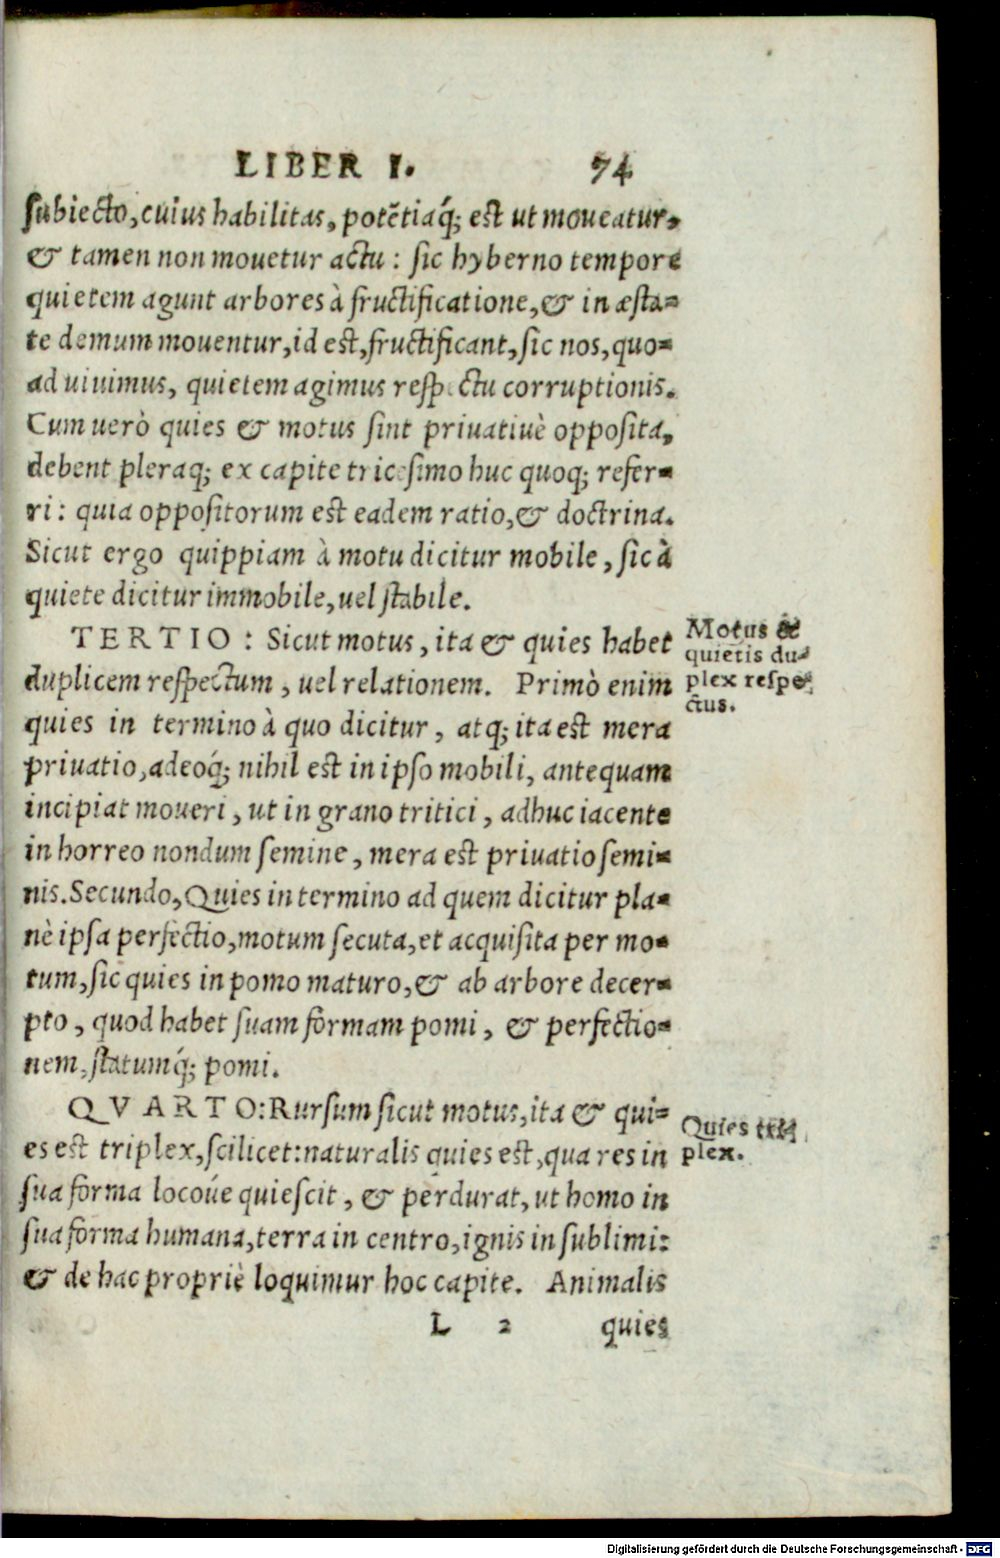 LIBER I. 74
subiecto, cuius habilitas, potẽtiaq́; est ut moueatur,
& tamen non mouetur actu : sic hyberno tempore
quietem agunt arbores à fructificatione, & in æsta-
te demum mouentur, id est, fructificant, sic nos, quo-
ad uiuimus, quietem agimus respectu corruptionis.
Cum uerò quies & motus sint priuatiuè opposita,
debent pleraq; ex capite tricesimo huc quoq; refer-
ri : quia oppositorum est eadem ratio, & doctrina.
Sicut ergo quippiam à motu dicitur mobile, sic à
quiete dicitur immobile, uel stabile.
TERTIO : Sicut motus, ita & quies habet
duplicem respectum, uel relationem. Primò enim
quies in termino à quo dicitur, atq; ita est mera
priuatio, adeoq́; nihil est in ipso mobili, antequam
incipiat moueri, ut in grano tritici, adhuc iacente
in horreo nondum semine, mera est priuatio semi-
nis. Secundo, Quies in termino ad quem dicitur pla-
nè ipsa perfectio, motum secuta, et acquisita per mo-
tum, sic quies in pomo maturo, & ab arbore decer-
pto, quod habet suam formam pomi, & perfectio-
nem, statumq́; pomi.
Motus &
quietis du-
plex respe-
ctus.
QVARTO: Rursum sicut motus, ita & qui-
es est triplex, scilicet: naturalis quies est, qua res in
sua forma locoúe quiescit, & perdurat, ut homo in
sua forma humana, terra in centro, ignis in sublimi:
& de hac propriè loquimur hoc capite. Animalis
Quies tri-
plex.
L 2 quies
Digitalisierung gefördert durch die Deutsche Forschungsgemeinschaft - DFG